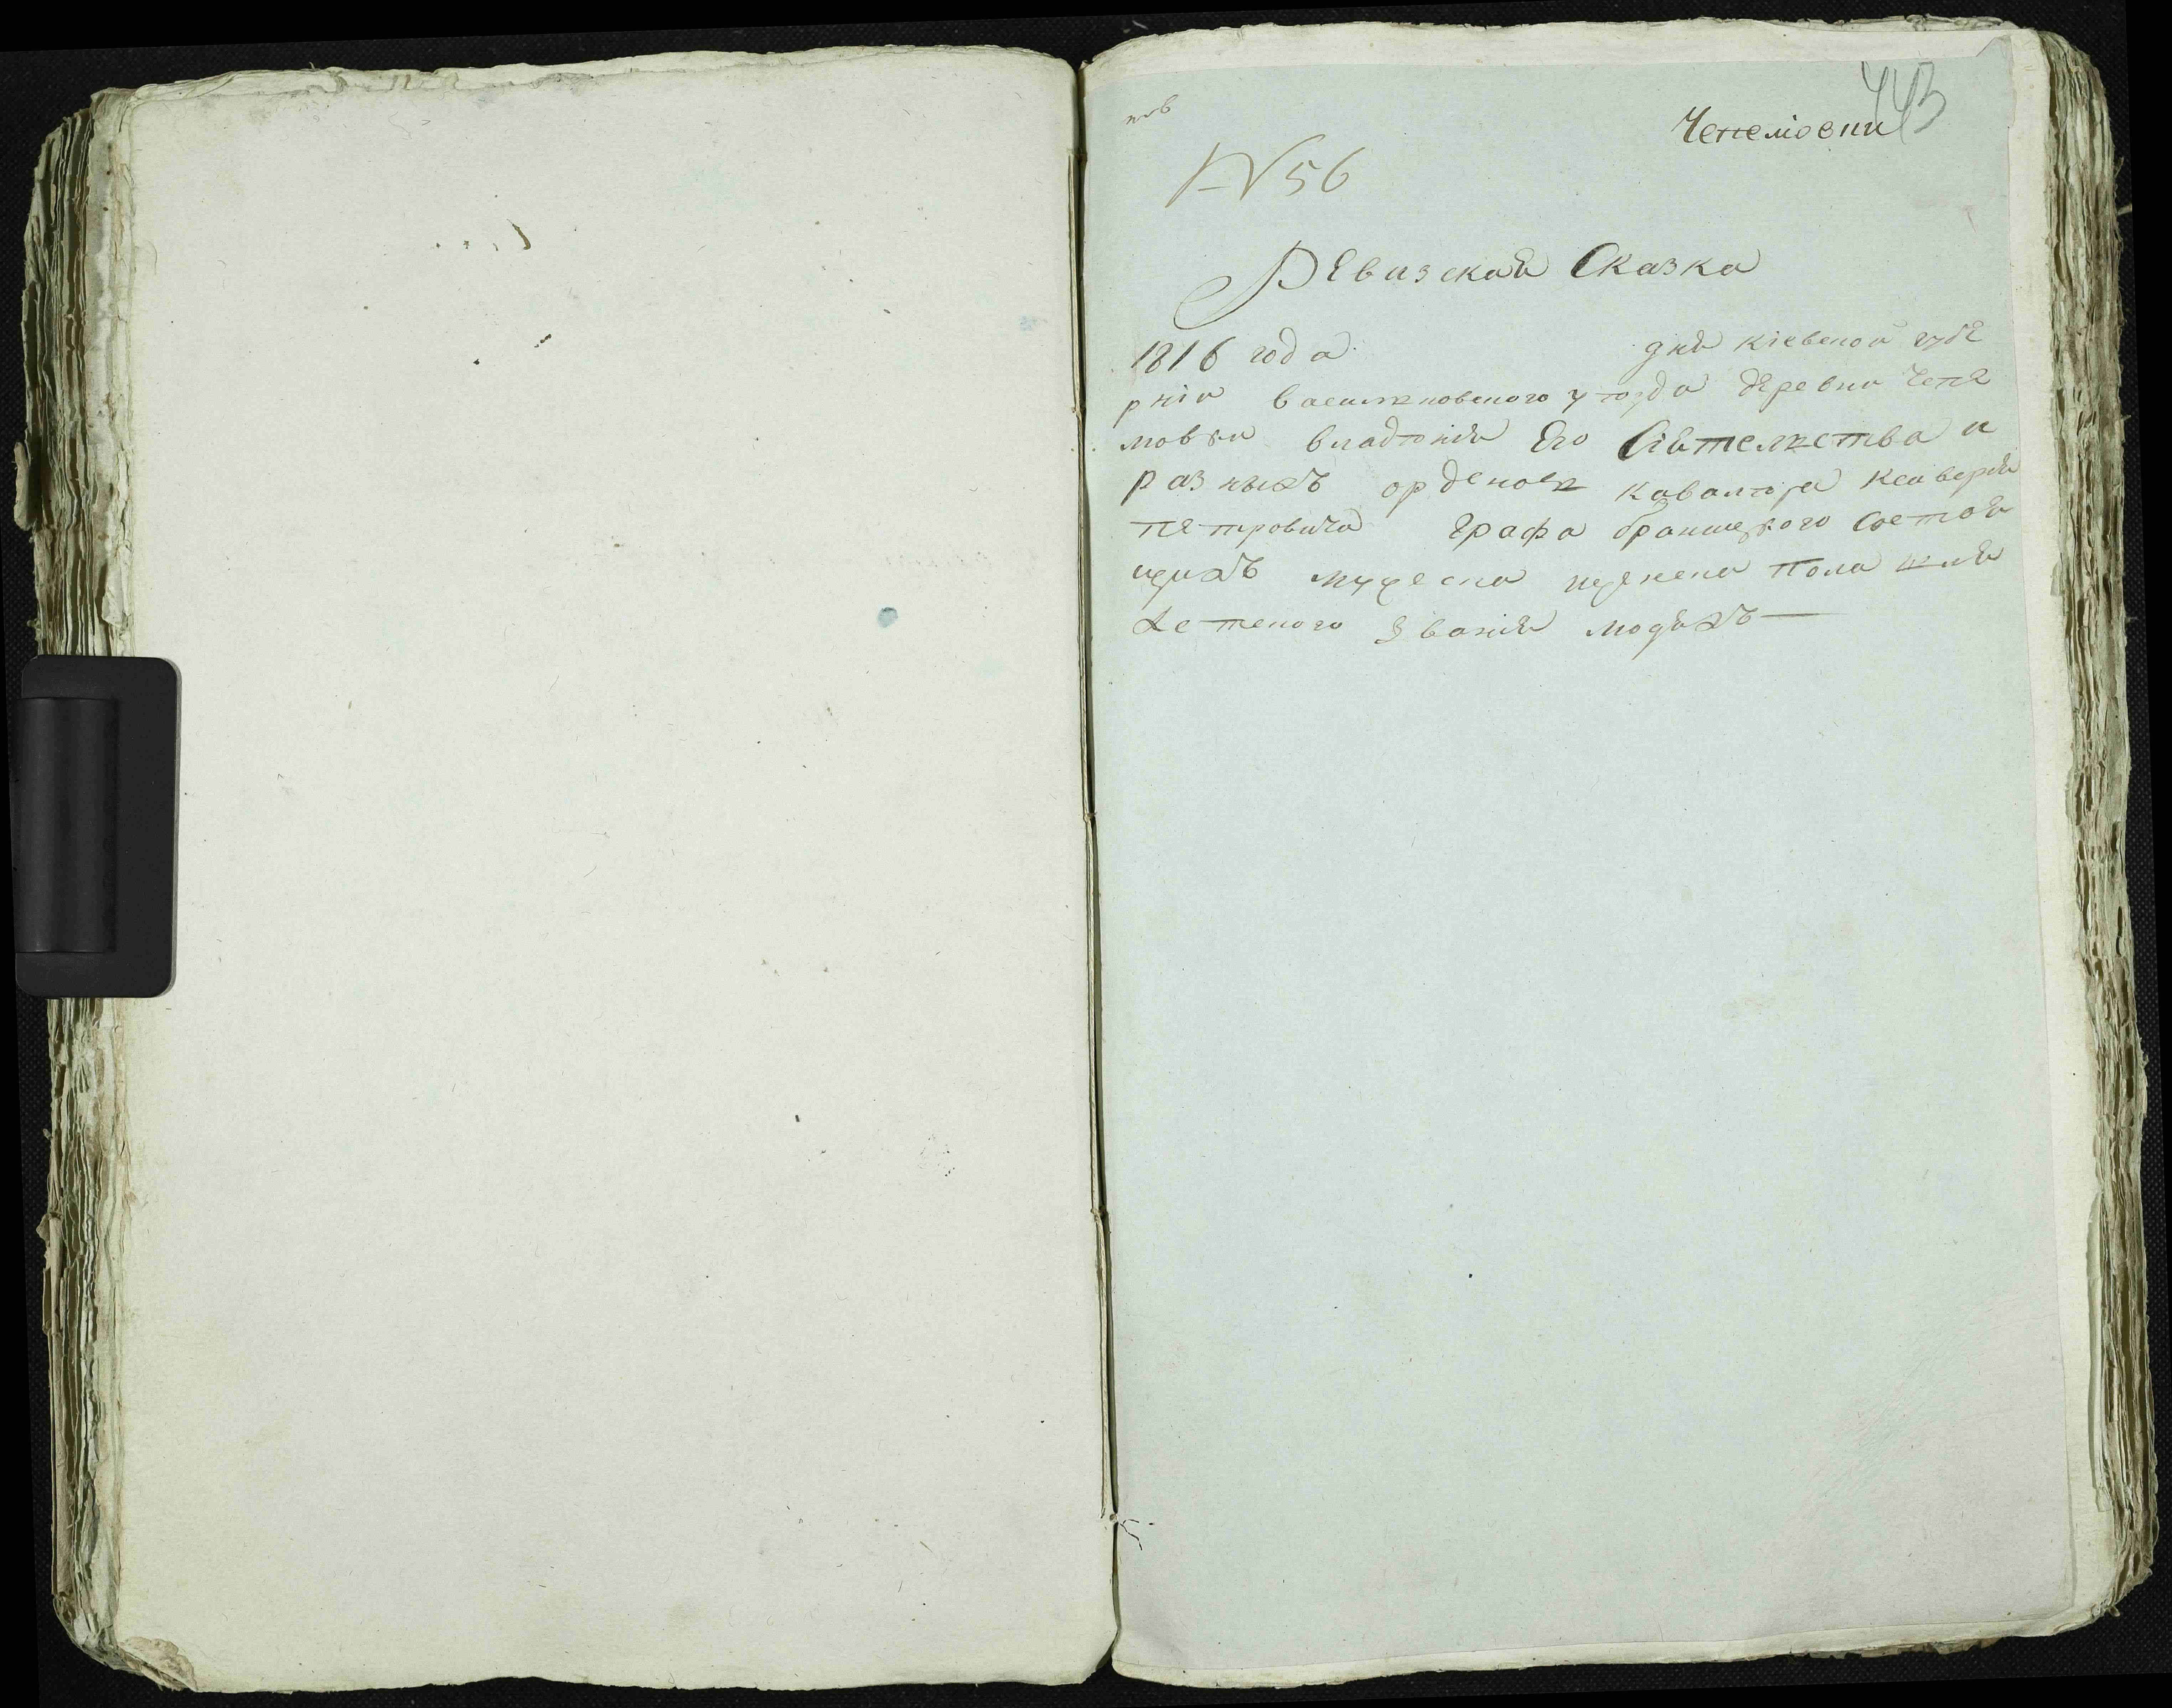 443
Чепемовки
№ 56
Ревизская Сказка
1816 года дня кіевской губе
рніи василковского уѣзда деревни Чепе
мовки владѣнія Его Сіятелства и
разныхъ орденовъ кавалѣра ксаверія
петровича Графа браницкого Состоя
щихъ мужеска иженска Пола шля
хетского званія людяхъ